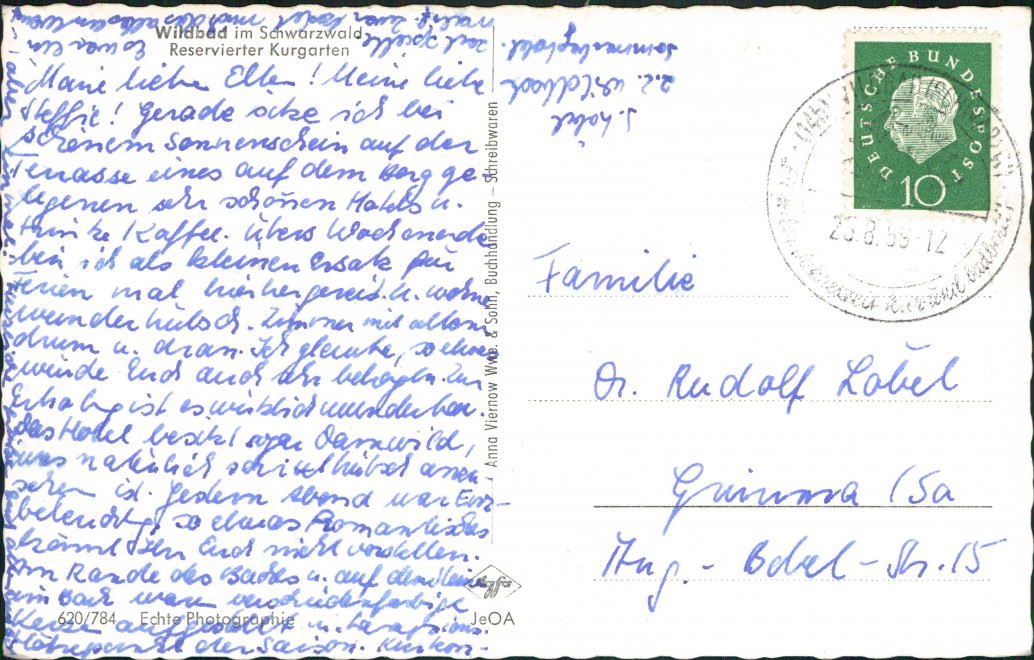 Wildbad im Schwarzwald
Reservierter Kurgarten
Meine lieben Eltern! Meine liebe
Steffie! Gerade sitze ich bei
schönem Sonnenschein auf der
Terrasse eines auf dem Berg ge-
legenen sehr schönen Hotels u.
trinke Kaffee. Übers Wochenende
bin ich als kleinen Ersatz für
Ferien mal hierhergereist u. wohne
wunderhübsch. Zimmer mit allem
drum u. dran. Ich glaube, so etwas
würde Euch auch sehr behagen. Zur
Erholung ist es wirklich wunderbar.
Das Hotel besitzt sogar Damwild,
was natürlich schrittelhübsch anzu-
sehen ist. Gestern Abend war Enz-
beleuchtung, so etwas Romantisches
könnt Ihr Euch nicht vorstellen.
Am Rande des Baches u. auf den Steinen
im Bach waren verschiedenfarbige
Kerzen aufgestellt u.
Höhepunkt der Saison. Kurkon-
620/784 Echte Photographie JeOA
Anna Viernow Wwe. & Sohn, Buchhandlung – Schreibwaren
Agfa
S. Löbel
z. Z. Wildbad
Sommerberghotel.
DEUTSCHE BUNDESPOST
10
(14b) WILDBAD (SCHWARZWALD)
23.8.59-12
Familie
Dr. Rudolf Löbel
Grimma / Sa
Aug.-Bebel-Str. 15